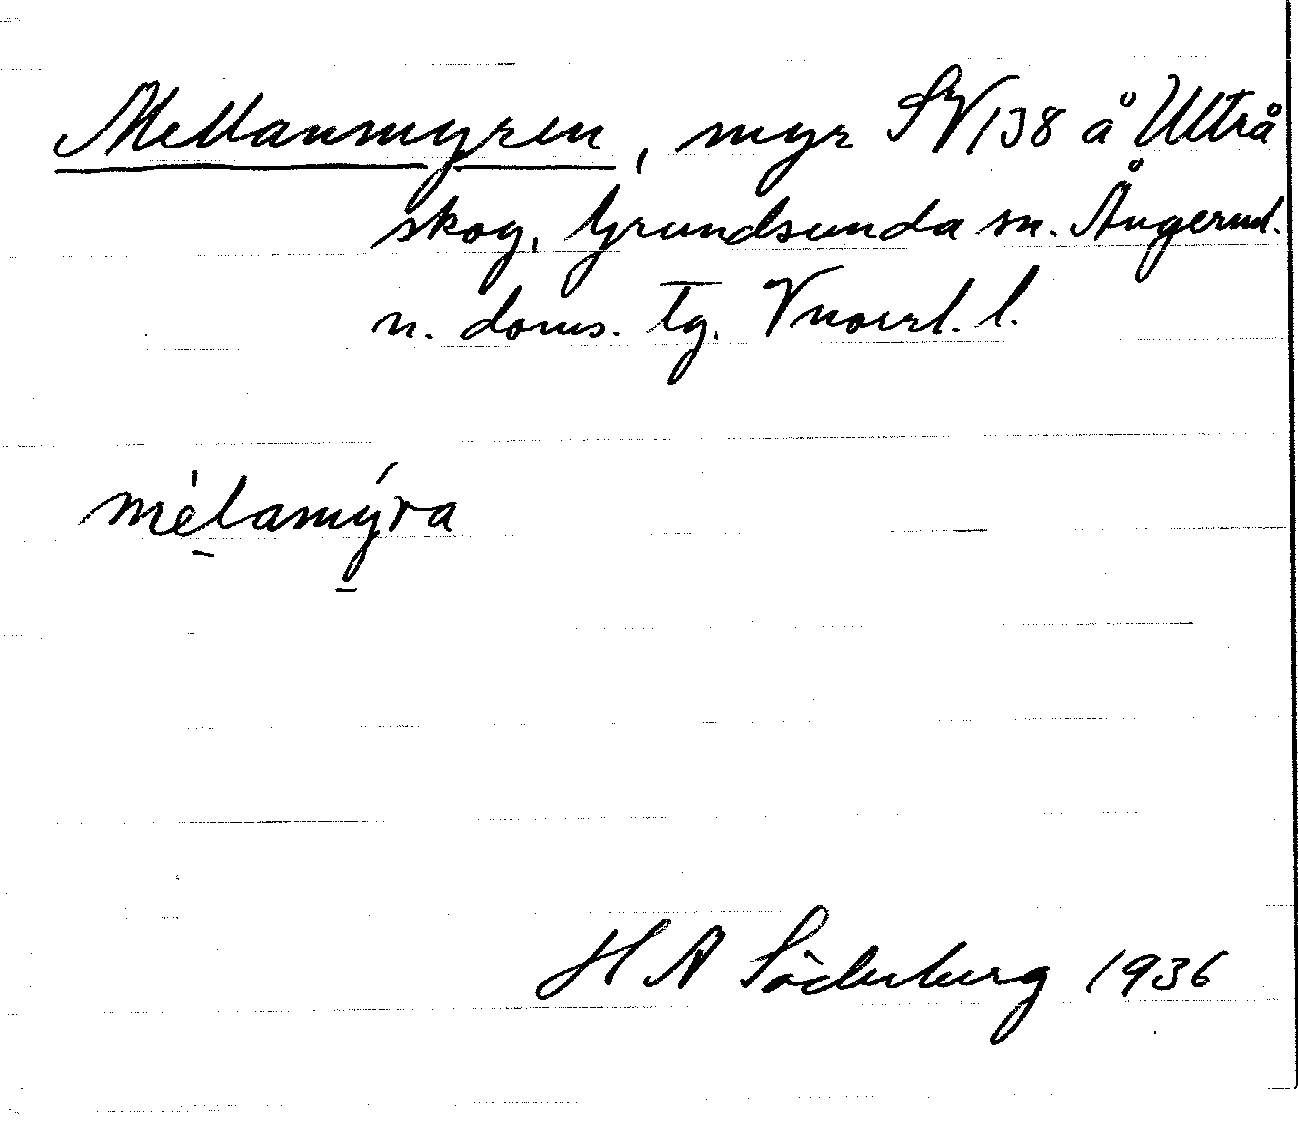 Mellanmyren, myr SV 138 å Ultrå
skog, Grundsunda sn. Ångerml.
n. doms. tg. Vnorrl. l.
mèlamýra
H A Söderberg 1936